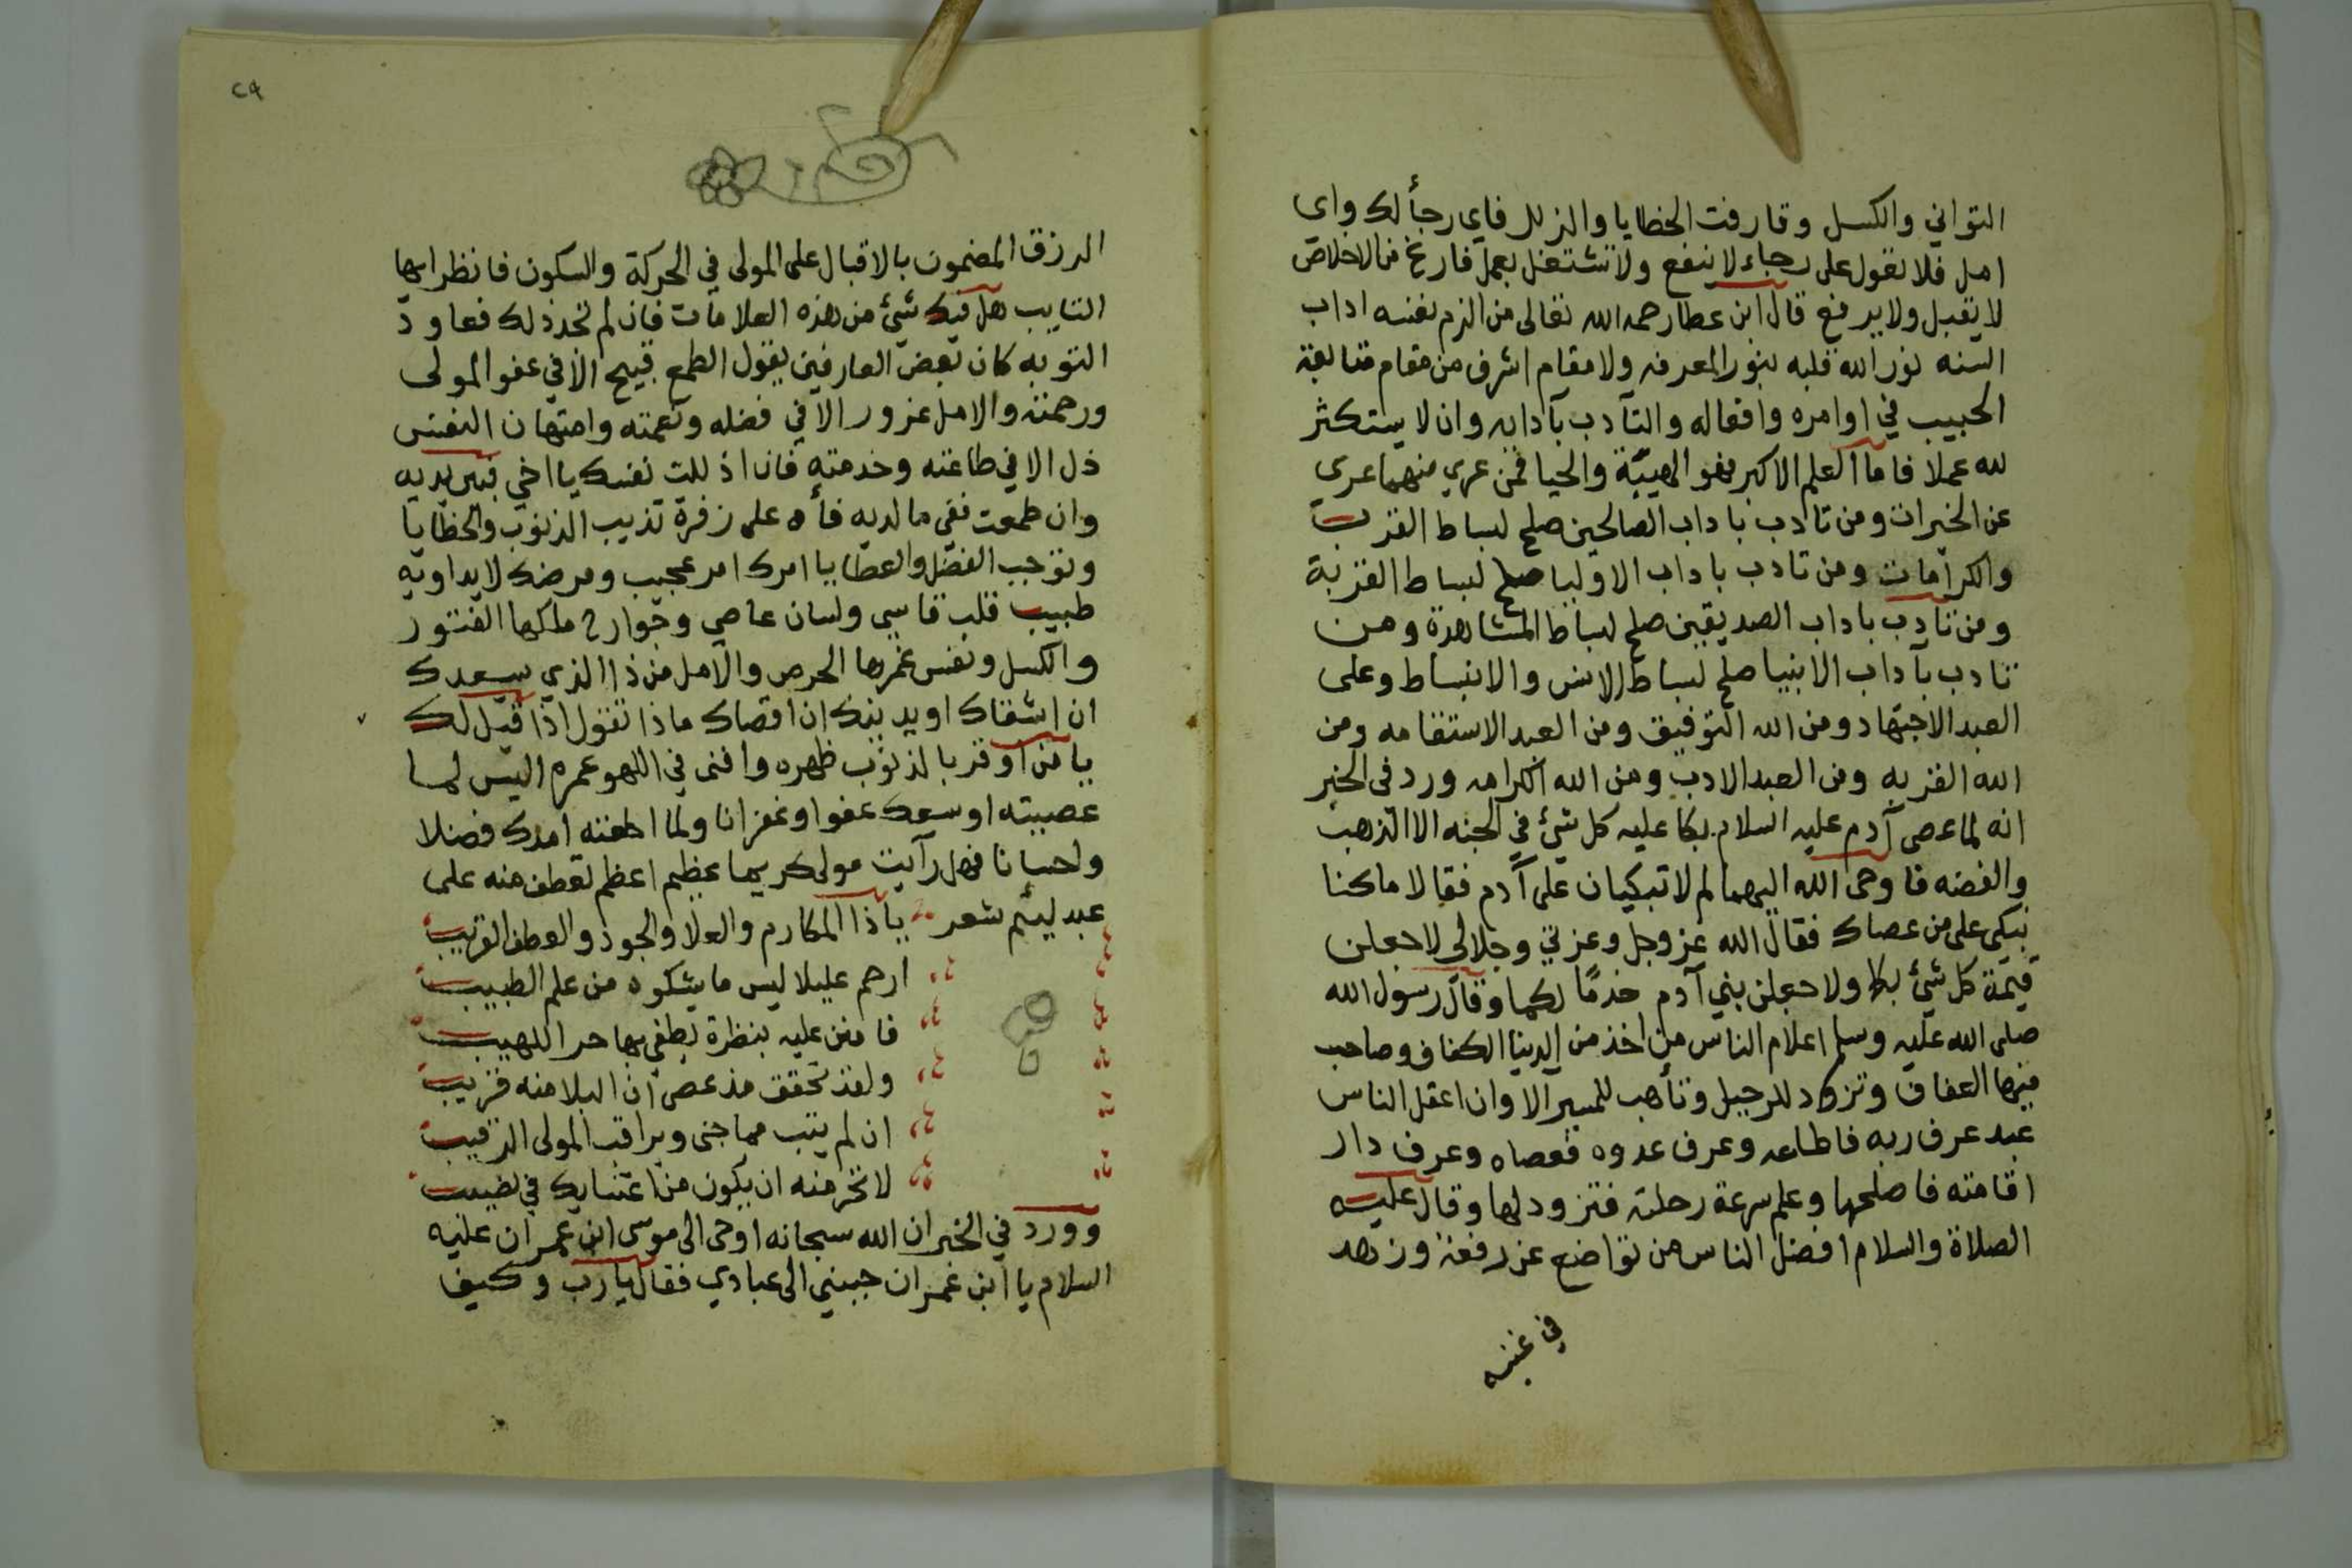 التواني والكسل وقارفت الخطايا والزلل فاي رجأ لك واي
امل فلا تعول على رجاء لا ينفع ولا تشتغل بعمل فارغ من الاخلاص
لا يقبل ولا يرفع قال ابن عطا رحمه الله تعالى من الزم نفسه اداب
السنه نور الله قلبه بنور المعرفه ولا مقام اشرف من مقام متابعة
الحبيب في اوامره وافعاله والتأدب بآدابه وان لا يستكثر
لله عملا فاما العلم الاكبر فهو الهيبة والحيا فمن عري منهما عرى
عن الخيرات ومن تادب باداب الصالحين صلح لبساط القرب
والكرامات ومن تادب باداب الاوليا صلح لبساط القربة
ومن تادب باداب الصديقين صلح لبساط المشاهدة ومن
تادب بآداب الانبيا صلح لبساط الانس والانبساط وعلى
العبد الاجتهاد ومن الله التوفيق ومن العبد الاستقامه ومن
الله القربه ومن العبد الادب ومن الله الكرامه ورد في الخبر
انه لما عصى آدم عليه السلام بكا عليه كل شئ في الجنه الا الذهب
والفضه فاوحى الله اليهما لم لا تبكيان على آدم فقالا ما كنا
نبكى على من عصاك فقال الله عز وجل وعزتي وجلالي لاجعلن
قيمة كل شئ بكا ولاجعلن بني آدم خدمًا لكما وقال رسول الله
صلى الله عليه وسلم اعلام الناس من اخذ من الدنيا الكفاف وصاحب
فيها العفاف وتزود للرحيل وتأهب للمسير الا وان اعقل الناس
عبد عرف ربه فاطاعه وعرف عدوه فعصاه وعرف دار
اقامته فاصلحها وعلم سرعة رحلته فتزود لها وقال عليه
الصلاة والسلام افضل الناس من تواضع عن رفعة وزهد
في غنيه
٢٩
الرزق المضمون بالاقبال على المولى في الحركة والسكون فانظر ايها
التايب هل فيك شئ من هذه العلامات فان لم تجد ذلك فعاود
التوبه كان بعض العارفين يقول الطمع قبيح الا في عفو المولى
ورحمته والامل غرور الا في فضله ونعمته وامتهان النفس
ذل الا في طاعته وخدمته فان اذللت نفسك يا اخي فبين يديه
وان طمعت ففي ما لديه فأه على زفرة تذيب الذنوب والخطايا
وتوجب الفضل والعطايا امرك امر عجيب ومرضك لا يداويه
طبيب قلب قاسي ولسان عاصي وجوارح ملكها الفتور
والكسل ونفس غمرها الحرص والامل من ذا الذي يسعدك
ان اشقاك او يدنيك ان اقصاك ماذا تقول اذا قيل لك
يا من اوقر بالذنوب ظهره وافنى في اللهو عمره اليس لما
عصيته اوسعك عفوا وغفرانا ولما اطعته امدك فضلا
واحسانا فهل رآيت مولى كريما عظيم اعظم تعطف منه على
عبد ليئم شعر يا ذا المكارم والعلا والجود والعطف القريب
ارحم عليلا ليس ما يشكوه من علم الطبيب
فامنن عليه بنظرة يطفي بها حر اللهيب
ولقد تحقق مذ عصى ان البلا منه قريب
ان لم يتب مما جنى ويراقب المولى الرقيب
لا تحرمنه ان يكون من اعتنايك في نصيب
وورد في الخبر ان الله سبحانه اوحى الى موسى ابن عمران عليه
السلام يا ابن عمران حببني الى عبادي فقال يا رب وكيف